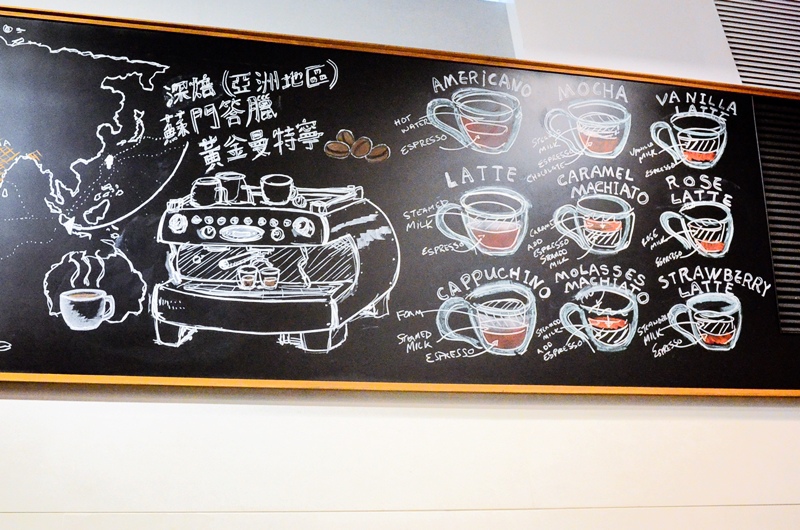 深焙（亞洲地區）
蘇門答臘
黃金曼特寧
AMERICANO
HOT
WATER
ESPRESSO
MOCHA
ESPRESSO
CHOCOLATE
VANILLA
LATTE
VANILLA
MILK
ESPRESSO
LATTE
STEAMED
MILK
ESPRESSO
CARAMEL
MACHIATO
CARAMEL
ADD
ESPRESSO
STEAMED
MILK
ROSE
LATTE
ROSE
MILK
ESPRESSO
CAPPUCHINO
FOAM
STEAMED
MILK
ESPRESSO
MOLASSES
MACHIATO
STEAMED
MILK
ADD
ESPRESSO
STRAWBERRY
LATTE
STRAWBERRY
MILK
ESPRESSO